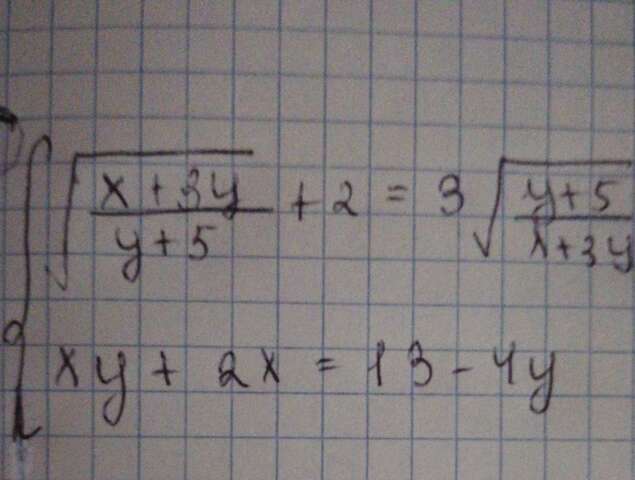 { √((x + 3y)/(y + 5)) + 2 = 3 √((y + 5)/(x + 3y))
xy + 2x = 13 - 4y